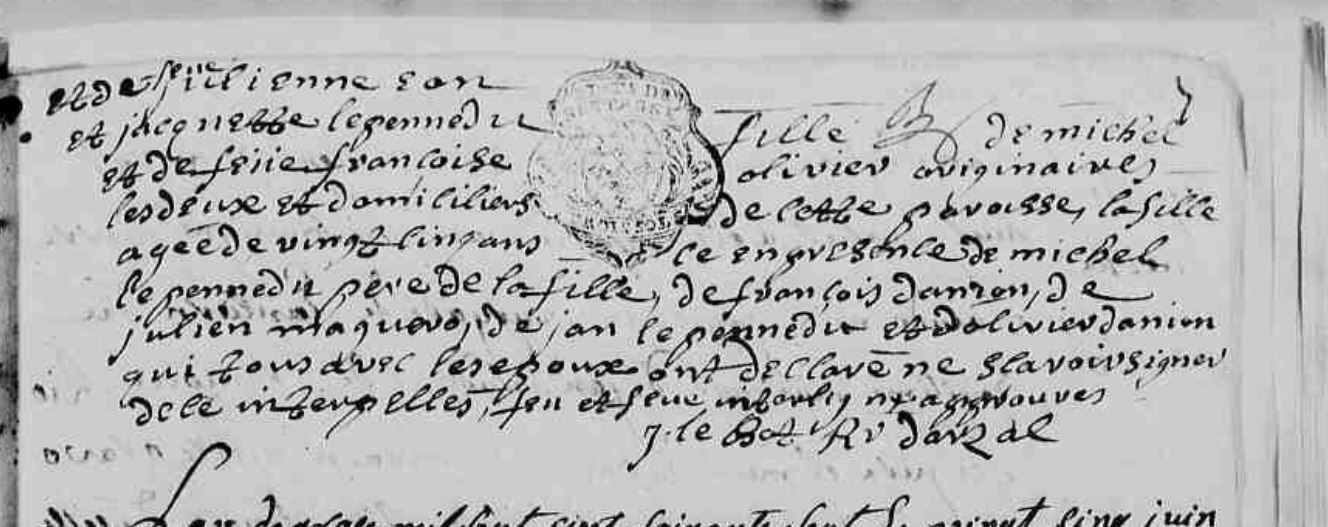 et de feüe iülienne eon
et jacquette lepennedu fille de michel
et de feüe francoise olivier originaires
les deux et domiciliers de cette paroisse, la fille
agee de vingt cinq ans ce en presence de michel
lepennedu père de la fille, de françois danion, de
julien maguero, de jan le pennedu et d'olivier danion
qui tous avec les epoux ont declare ne scavoir signer
de ce interpelles, feu et feüe interlignes approuves
j. le Bot Rr d'arzal
mil sept cent soixante sept le vingt cinq juin